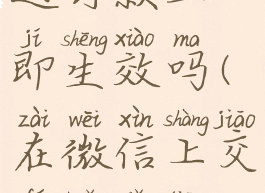 jí shēng xiào ma
即生效吗(
zài wēi xìn shàng jiāo
在微信上交